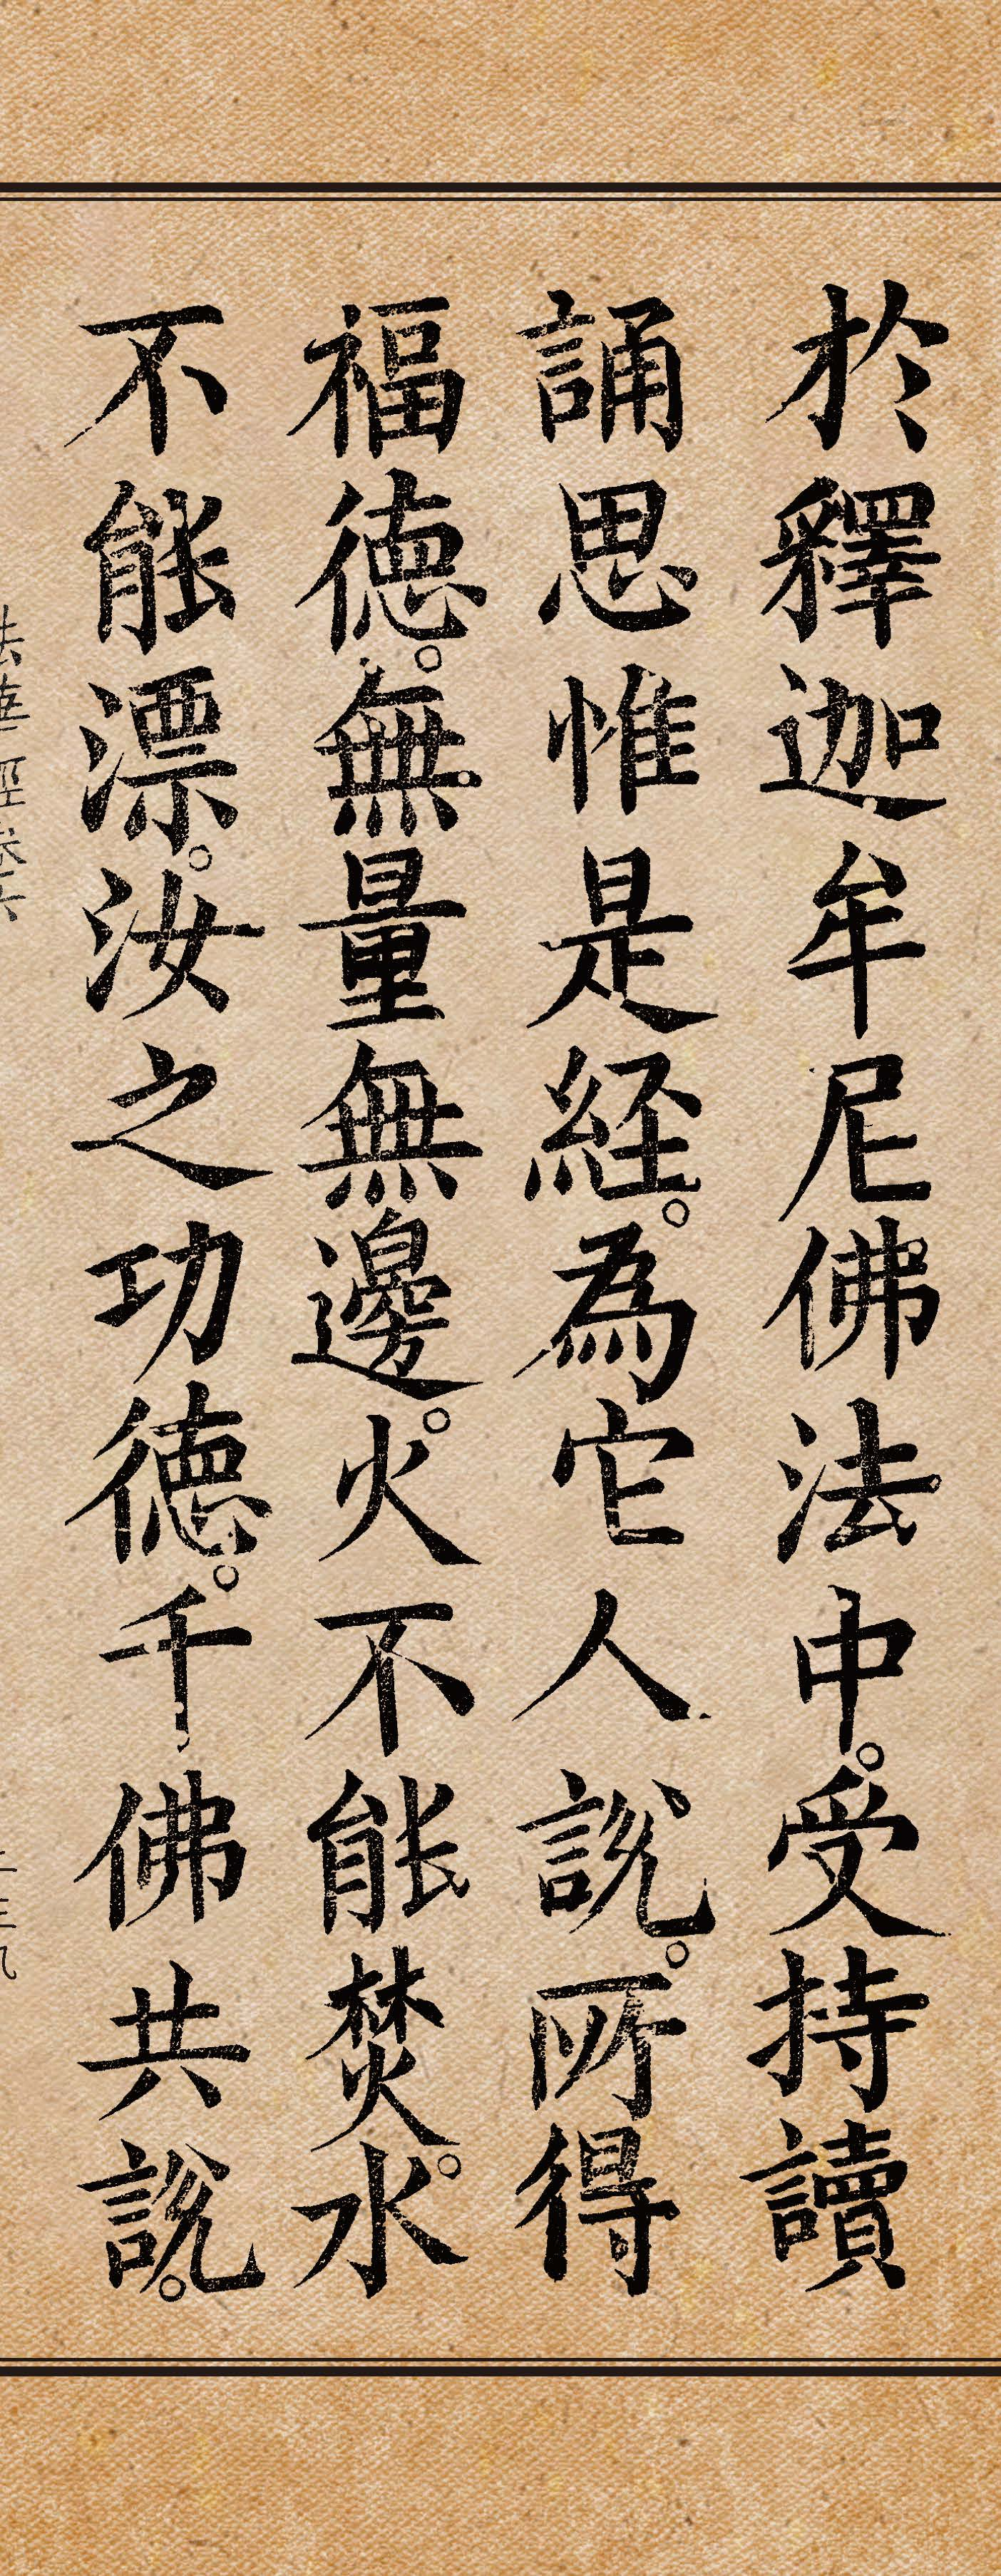 於釋迦牟尼佛法中。受持讀
誦思惟是経。為它人說。所得
福德。無量無邊。火不能焚。水
不能漂。汝之功德。千佛共說。